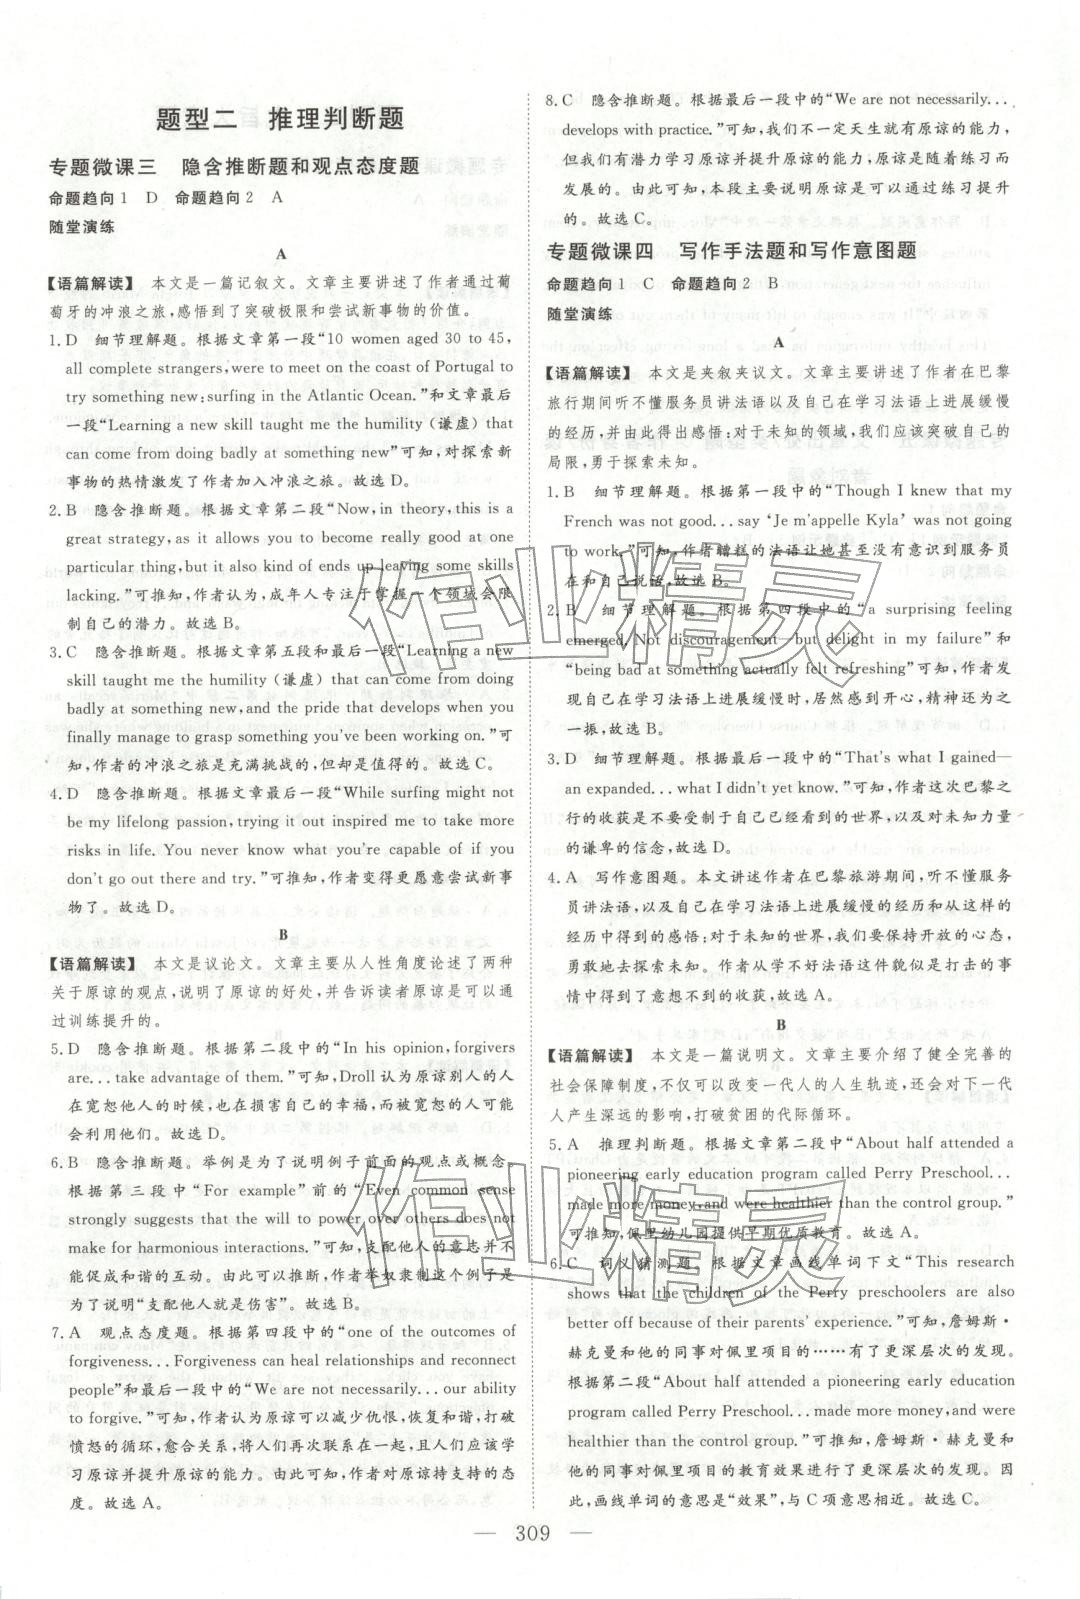 题型二 推理判断题
专题微课三 隐含推断题和观点态度题
命题趋向1 D 命题趋向2 A
随堂演练
A
【语篇解读】 本文是一篇记叙文。文章主要讲述了作者通过葡
萄牙的冲浪之旅,感悟到了突破极限和尝试新事物的价值。
1. D 细节理解题。根据文章第一段“10 women aged 30 to 45,
all complete strangers, were to meet on the coast of Portugal to
try something new: surfing in the Atlantic Ocean.”和文章最后
一段“Learning a new skill taught me the humility(谦虚)that
can come from doing badly at something new”可知,对探索新
事物的热情激发了作者加入冲浪之旅。故选D。
2. B 隐含推断题。根据文章第二段“Now, in theory, this is a
great strategy, as it allows you to become good at one
particular thing, but it also kind of ends up leaving some skills
lacking.”可推知,作者认为,成年人专注于掌握一个领域会限
制自己的潜力。故选B。
3. C 隐含推断题。根据文章第五段和最后一段“Learning a new
skill taught me the humility(谦虚)that can come from doing
badly at something new, and the pride that develops when you
finally manage to grasp something you've been working on.”可
知,作者的冲浪之旅是充满挑战的,但却是值得的。故选C。
4. D 隐含推断题。根据文章最后一段“While surfing might not
be my lifelong passion, trying it out inspired me to take more
risks in life. You never know what you're capable of if you
don't go out there and try.”可推知,作者变得更愿意尝试新事
物了。故选D。
B
【语篇解读】 本文是议论文。文章主要从人性角度论述了两种
关于原谅的观点,说明了原谅的好处,并告诉读者原谅是可以通
过训练提升的。
5. D 隐含推断题。根据第二段中的“In his opinion, forgivers
are... take advantage of them.”可知,Droll认为原谅别人的人
在宽恕他人的时候,也在损害自己的幸福,而被宽恕的人可能
会利用他们。故选D。
6. B 隐含推断题。举例是为了说明例子前面的观点或概念,
根据第三段中“For example”前的“Even common sense
strongly suggests that the will to power over others does not
make for harmonious interactions.”可知,支配他人的意志并不
能促成和谐的互动。由此可以推断,作者举奴隶制这个例子是
为了说明“支配他人就是伤害”。故选B。
7. A 观点态度题。根据第四段中的“one of the outcomes of
forgiveness... Forgiveness can heal relationships and reconnect
people”和最后一段中的“We are not necessarily... our ability
to forgive.”可知,作者认为原谅可以减少仇恨,恢复和谐,打破
愤怒的循环,愈合关系,将人们再次联系在一起,且人们应该学
习原谅并提升原谅的能力。由此可知,作者对原谅持支持的态
度。故选A。
8. C 隐含推断题。根据最后一段中的“We are not necessarily...
develops with practice.”可知,我们不一定天生就有原谅的能力,
但我们要努力学习原谅并提升原谅的能力,原谅是随着练习而
发展的。由此可知,本段主要说明原谅是可以通过练习提升
的。故选C。
专题微课四 写作手法题和写作意图题
命题趋向1 C 命题趋向2 B
随堂演练
A
【语篇解读】 本文是夹叙夹议文。文章主要讲述了作者在巴黎
旅行期间听不懂服务员讲法语以及自己在学习法语上进展缓慢
的经历,并由此得出感悟:对于未知的领域,我们应该突破自己的
局限,勇于探索未知。
1. B 细节理解题。根据第一段中的“Though I knew that my
French was not good... say ‘Je m'appelle Kyla’ was not going
to work.”可知,作者糟糕的法语让她甚至没有意识到服务员
在和自己说话,故选B。
2. B 细节理解题。根据第四段中的“a surprising feeling
emerged. Not discouragement—but delight in my failure”和
“being bad at something actually felt refreshing”可知,作者发
现自己在学习法语上进展缓慢时,居然感到开心,精神还为之
一振,故选B。
3. D 细节理解题。根据最后一段中的“That's what I gained—
an expanded... what I didn't yet know.”可知,作者这次巴黎之
行的收获是不要受制于自己已经看到的世界,以及对未知力量
的谦卑的信念,故选D。
4. A 写作意图题。本文讲述作者在巴黎旅游期间,听不懂服务
员讲法语,以及自己在学习法语上进展缓慢的经历和从这样的
经历中得到的感悟:对于未知的世界,我们要保持开放的心态,
勇敢地去探索未知。作者从学不好法语这件貌似是打击的事
情中得到了意想不到的收获,故选A。
B
【语篇解读】 本文是一篇说明文。文章主要介绍了健全完善的
社会保障制度,不仅可以改变一代人的人生轨迹,还会对下一代
人产生深远的影响,打破贫困的代际循环。
5. A 推理判断题。根据文章第二段中“About half attended a
pioneering early education program called Perry Preschool...
made more money, and were healthier than the control group.”
可推知,佩里幼儿园提供早期优质教育。故选A。
6. C 词义猜测题。根据文章画线单词下文“This research
shows that the children of the Perry preschoolers are also
better off because of their parents' experience.”可知,詹姆斯·
赫克曼和他的同事对佩里项目的……有了更深层次的发现。
根据第二段“About half attended a pioneering early education
program called Perry Preschool... made more money, and were
healthier than the control group.”可推知,詹姆斯·赫克曼和
他的同事对佩里项目的教育效果进行了更深层次的发现。因
此,画线单词的意思是“效果”,与C项意思相近。故选C。
— 309 —
作业精灵
作业精灵